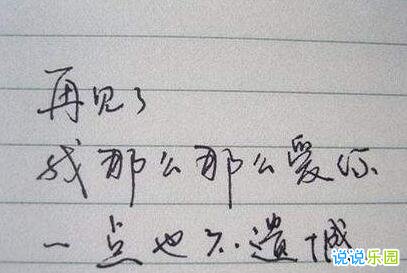 再见了
我那么那么爱你
一点也不遗憾
说说乐园